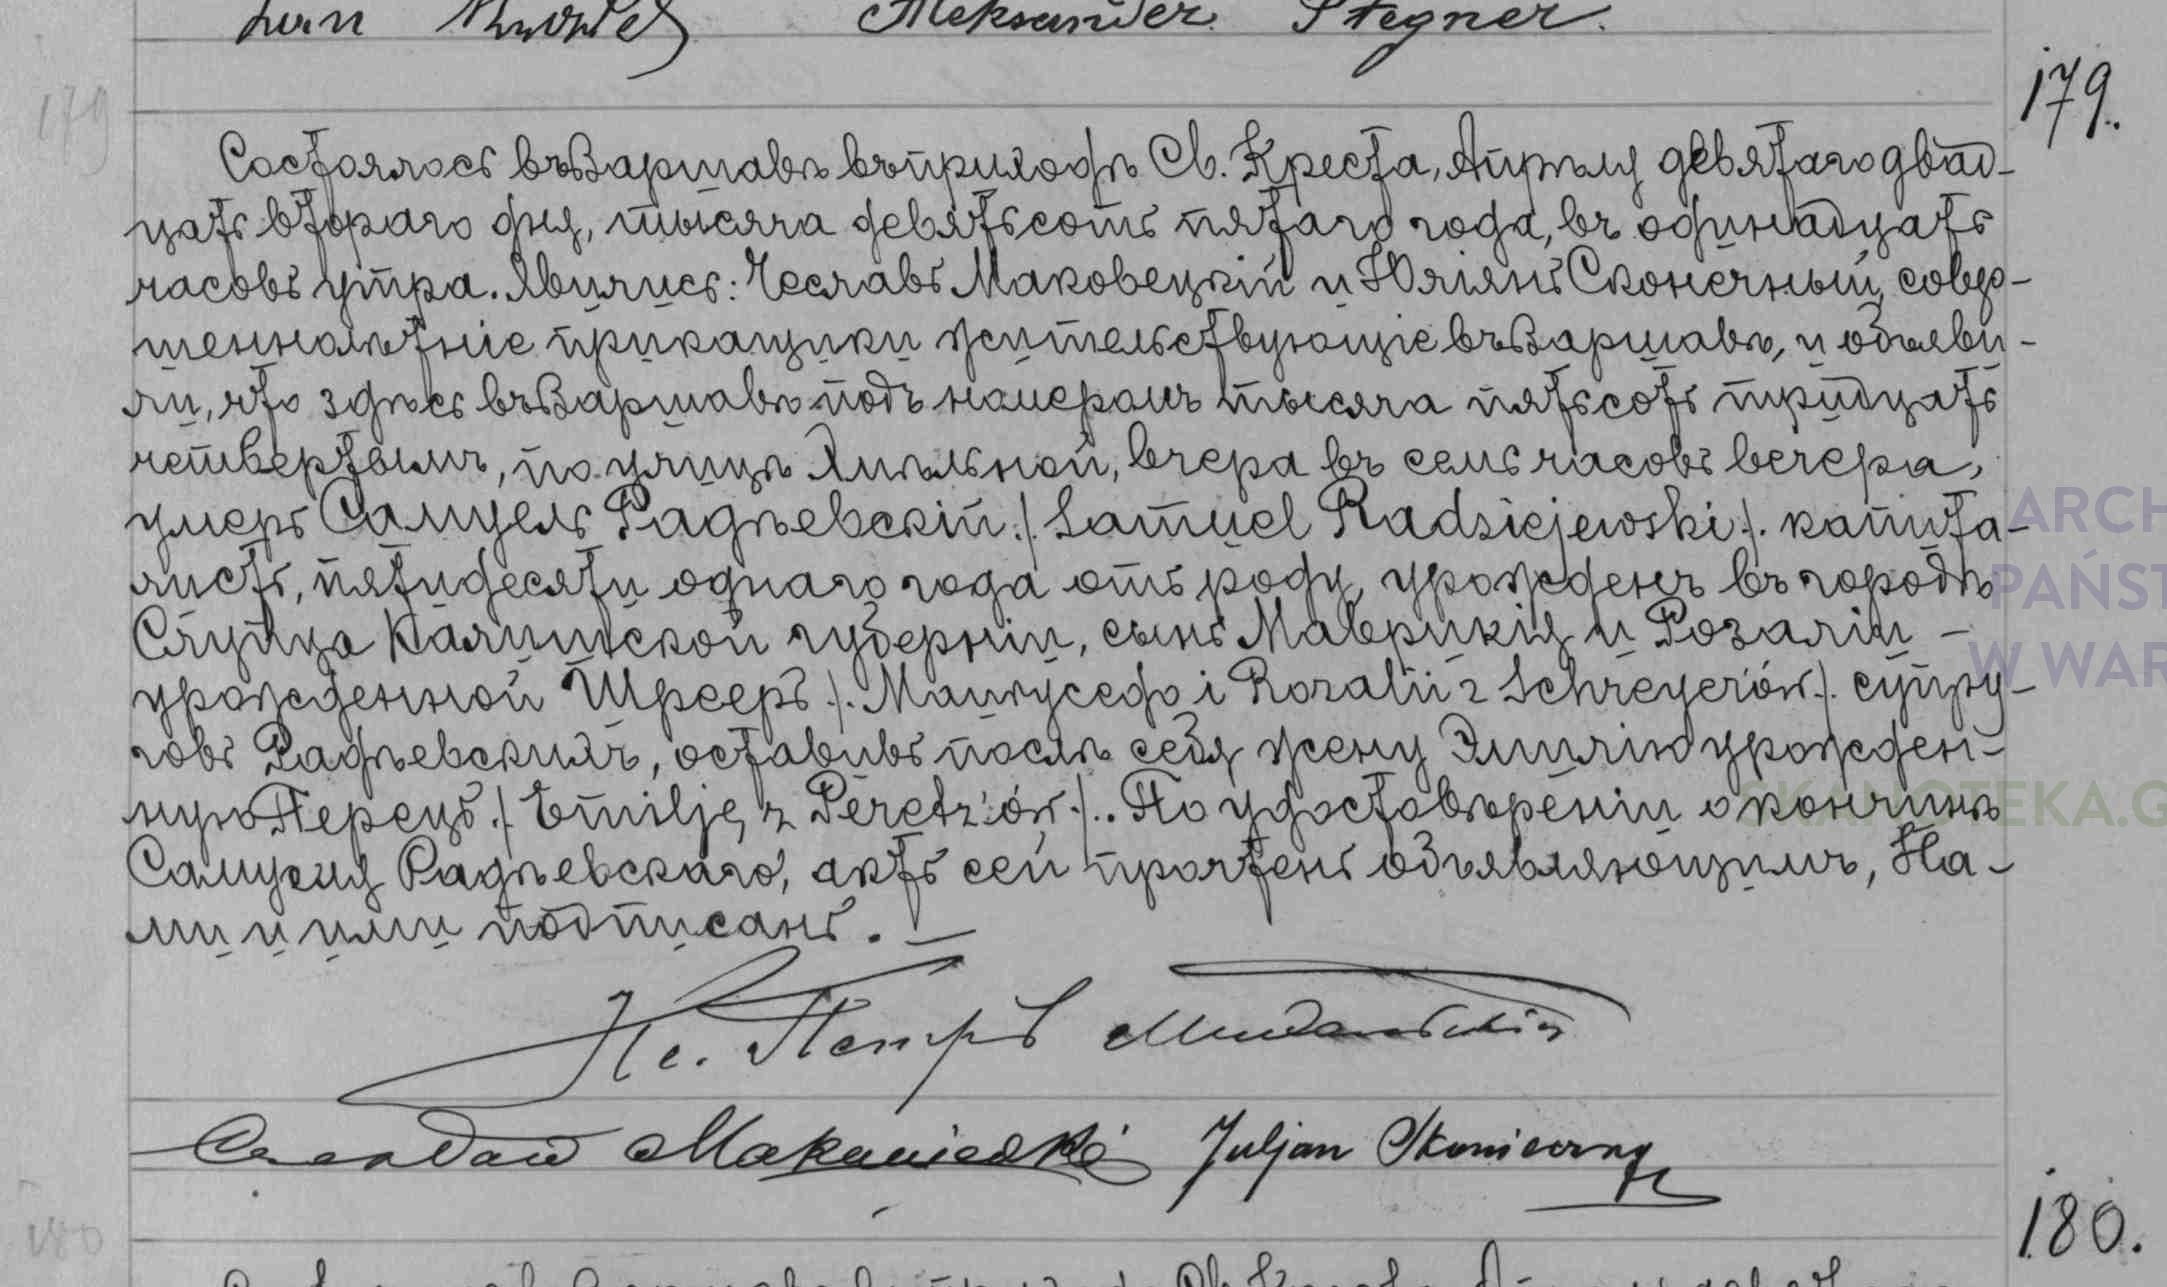 Aleksander Stegner.
179
179.
Состоялось въ Варшавѣ въ приходѣ Св. Креста, Апрѣля девятаго двад-
цать втораго дня, тысяча девятьсотъ пятаго года, въ одинадцать
часовъ утра. Явились: Чеславъ Маковецкій и Юліянъ Сконечный, совер-
шеннолѣтніе прикащики жительствующіе въ Варшавѣ, и объяви-
ли, что здѣсь въ Варшавѣ подъ номеромъ тысяча пятьсотъ тридцать
четвертымъ, по улицѣ Хмѣльной, вчера въ семь часовъ вечера,
умеръ Самуель Радѣевскій /Samuel Radziejewski/. капита-
листъ, пятидесяти одного года отъ роду, урожденъ въ городѣ
Слупца Калишской губерніи, сынъ Маврикія и Розаліи –
урожденной Шрееръ /. Maurycego i Rozalii z Schreyerów/. супру-
говъ Радѣевскихъ, оставивъ послѣ себя жену Эмилію урожден-
ную Перецъ /Emilję z Peretz'ów/. По удостовѣреніи о кончинѣ
Самуеля Радѣевскаго, актъ сей прочтенъ объявляющимъ, На-
ми и ими подписанъ. –
Кс. Петръ
Czesław Makowiecki Juljan Skonieczny
180
180.
ARCH
PAŃST
W WAR
SKANOTEKA.G